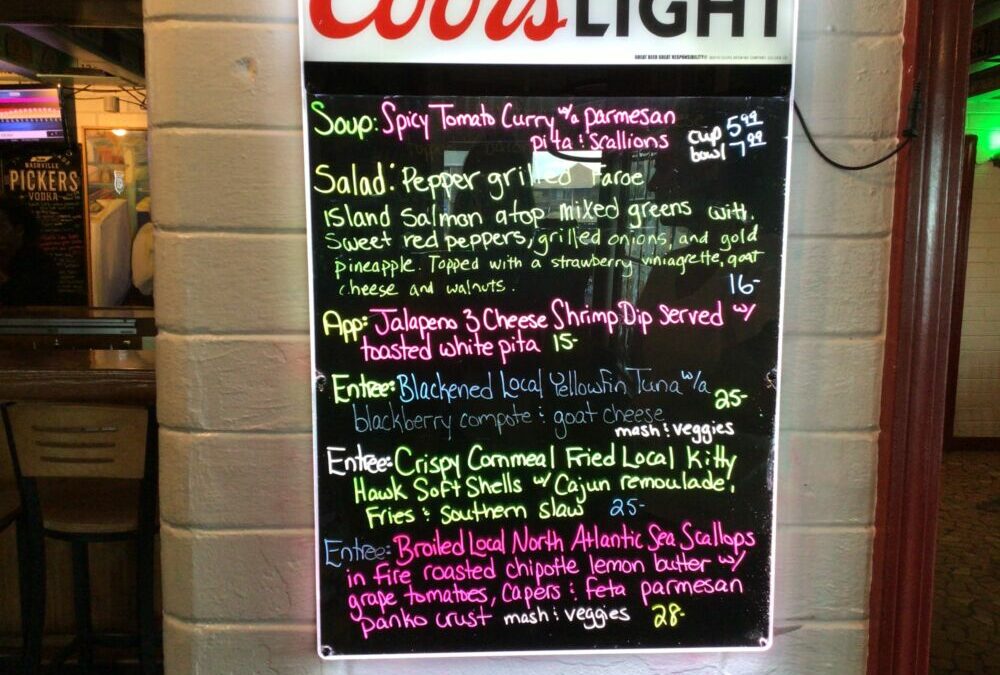 Coors LIGHT
GREAT BEER GREAT RESPONSIBILITY
NASHVILLE
PICKERS
VODKA
Soup: Spicy Tomato Curry w/a parmesan
pita & scallions
cup 5.99
bowl 7.99
Salad: Pepper grilled Faroe
Island Salmon atop mixed greens with
Sweet red peppers, grilled onions, and gold
pineapple. Topped with a strawberry viniagrette, goat
cheese and walnuts.
16-
App: Jalapeno 3 Cheese Shrimp Dip served w/
toasted white pita 15-
Entree: Blackened Local Yellowfin Tuna w/a
blackberry compote & goat cheese
25-
mash & veggies
Entree: Crispy Cornmeal Fried Local Kitty
Hawk Soft Shells w/ Cajun remoulade,
Fries & Southern slaw 25-
Entree: Broiled Local North Atlantic Sea Scallops
in fire roasted chipotle lemon butter w/
grape tomatoes, capers & feta parmesan
panko crust mash & veggies 28-